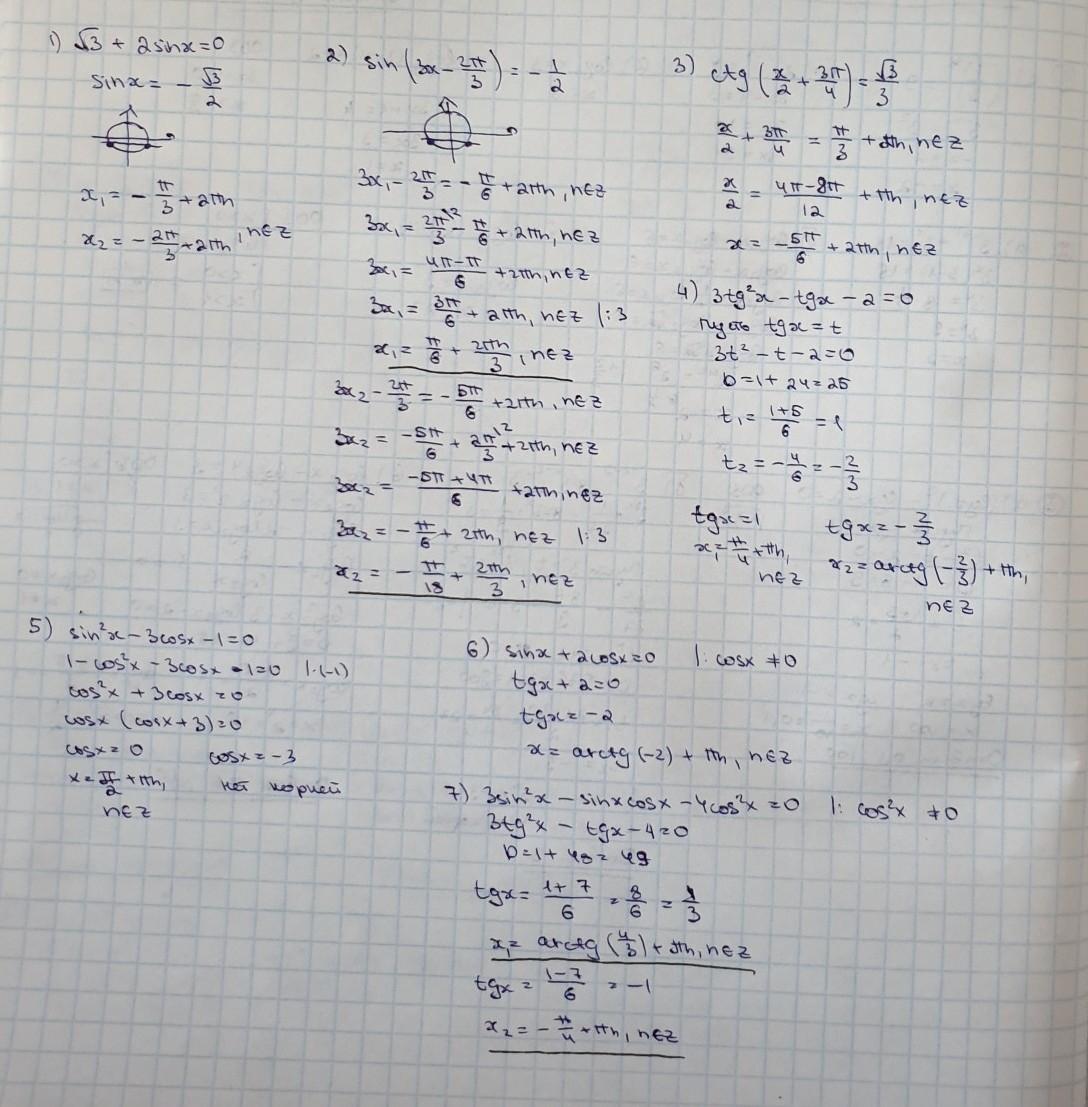 1) √3 + 2sinx=0
sinx = - √3/2
x₁ = - π/3 + 2πn
x₂ = - 2π/3 + 2πn, n∈Z
2) sin (3x - 2π/3) = - 1/2
3x₁ - 2π/3 = - π/6 + 2πn, n∈Z
3x₁ = 2π\2/3 - π/6 + 2πn, n∈Z
3x₁ = 4π-π/6 + 2πn, n∈Z
3x₁ = 3π/6 + 2πn, n∈Z |:3
x₁ = π/6 + 2πn/3, n∈Z
3x₂ - 2π/3 = - 5π/6 + 2πn, n∈Z
3x₂ = -5π/6 + 2π\2/3 + 2πn, n∈Z
3x₂ = -5π+4π/6 + 2πn, n∈Z
3x₂ = - π/6 + 2πn, n∈Z |:3
x₂ = - π/18 + 2πn/3, n∈Z
3) ctg (x/2 + 3π/4) = √3/3
x/2 + 3π/4 = π/3 + πn, n∈Z
x/2 = 4π-9π/12 + πn, n∈Z
x = -5π/6 + 2πn, n∈Z
4) 3tg²x - tgx - 2 = 0
пусть tgx = t
3t² - t - 2 = 0
D = 1 + 24 = 25
t₁ = 1+5/6 = 1
t₂ = - 4/6 = - 2/3
tgx = 1
x₁ = π/4 + πn,
n∈Z
tgx = - 2/3
x₂ = arctg (-2/3) + πn,
n∈Z
5) sin²x - 3cosx - 1 = 0
1 - cos²x - 3cosx - 1 = 0 |·(-1)
cos²x + 3cosx = 0
cosx (cosx + 3) = 0
cosx = 0 cosx = -3
x = π/2 + πn, нет корней
n∈Z
6) sinx + 2cosx = 0 |: cosx ≠ 0
tgx + 2 = 0
tgx = -2
x = arctg (-2) + πn, n∈Z
7) 3sin²x - sinxcosx - 4cos²x = 0 |: cos²x ≠ 0
3tg²x - tgx - 4 = 0
D = 1 + 48 = 49
tgx = 1+7/6 = 8/6 = 4/3
x₁ = arctg (4/3) + πn, n∈Z
tgx = 1-7/6 = -1
x₂ = - π/4 + πn, n∈Z